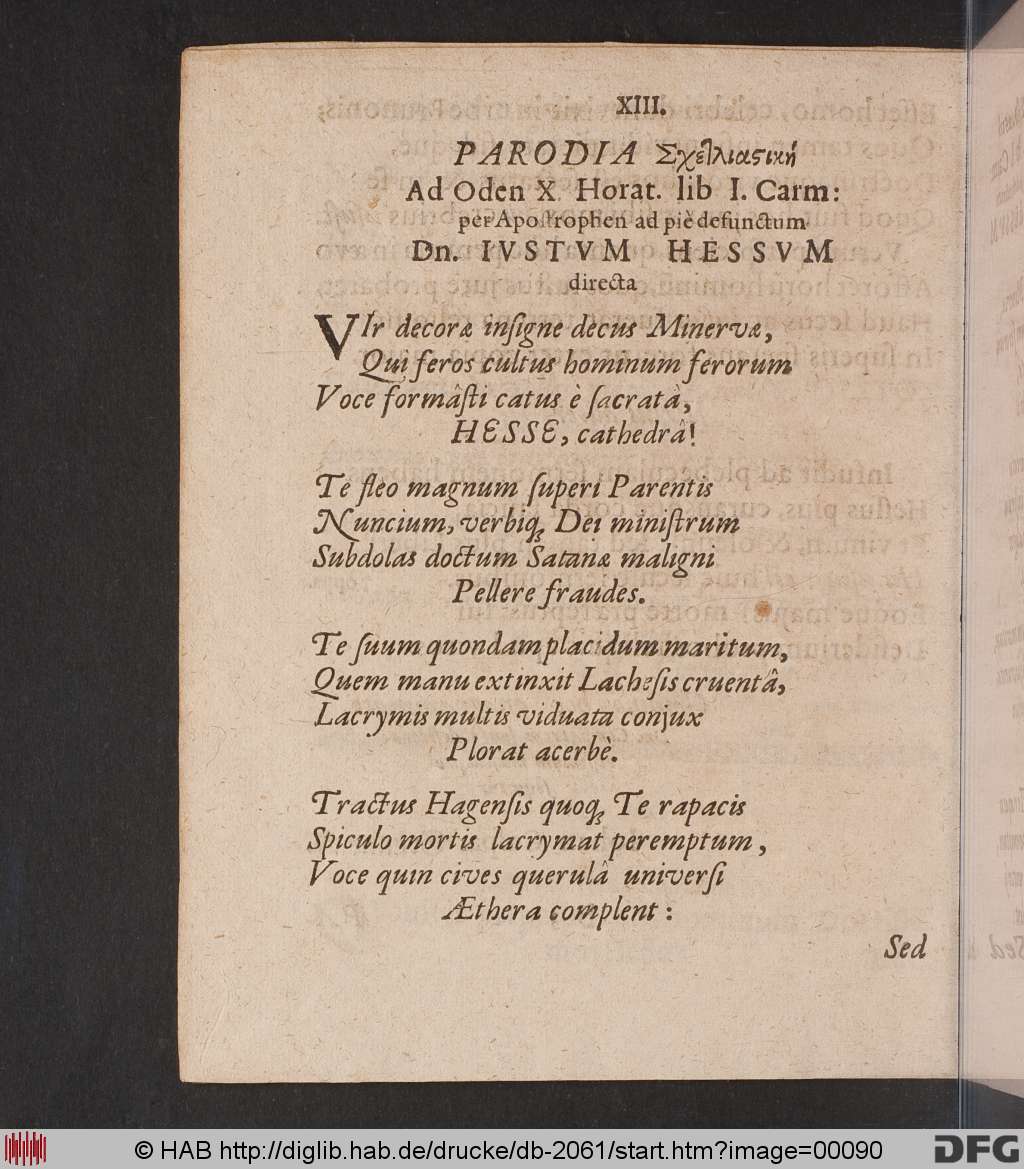 XIII.
PARODIA Σχετλιαστική
Ad Oden X Horat. lib I. Carm:
per Apostrophen ad piè defunctum
Dn. IVSTVM HESSVM
directa
VIr decoræ inſigne decus Minervæ,
Qui feros cultus hominum ferorum
Voce formâſti catus è ſacratâ,
HESSE, cathedrâ!
Te fleo magnum ſuperi Parentis
Nuncium, verbiq́ꝫ Dei miniſtrum
Subdolas doctum Satanæ maligni
Pellere fraudes.
Te ſuum quondam placidum maritum,
Quem manu extinxit Lacheſis cruentâ,
Lacrymis multis viduata conjux
Plorat acerbè.
Tractus Hagenſis quoqꝫ Te rapacis
Spiculo mortis lacrymat peremptum,
Voce quin cives querulâ univerſi
Æthera complent:
Sed
© HAB http://diglib.hab.de/drucke/db-2061/start.htm?image=00090
DFG